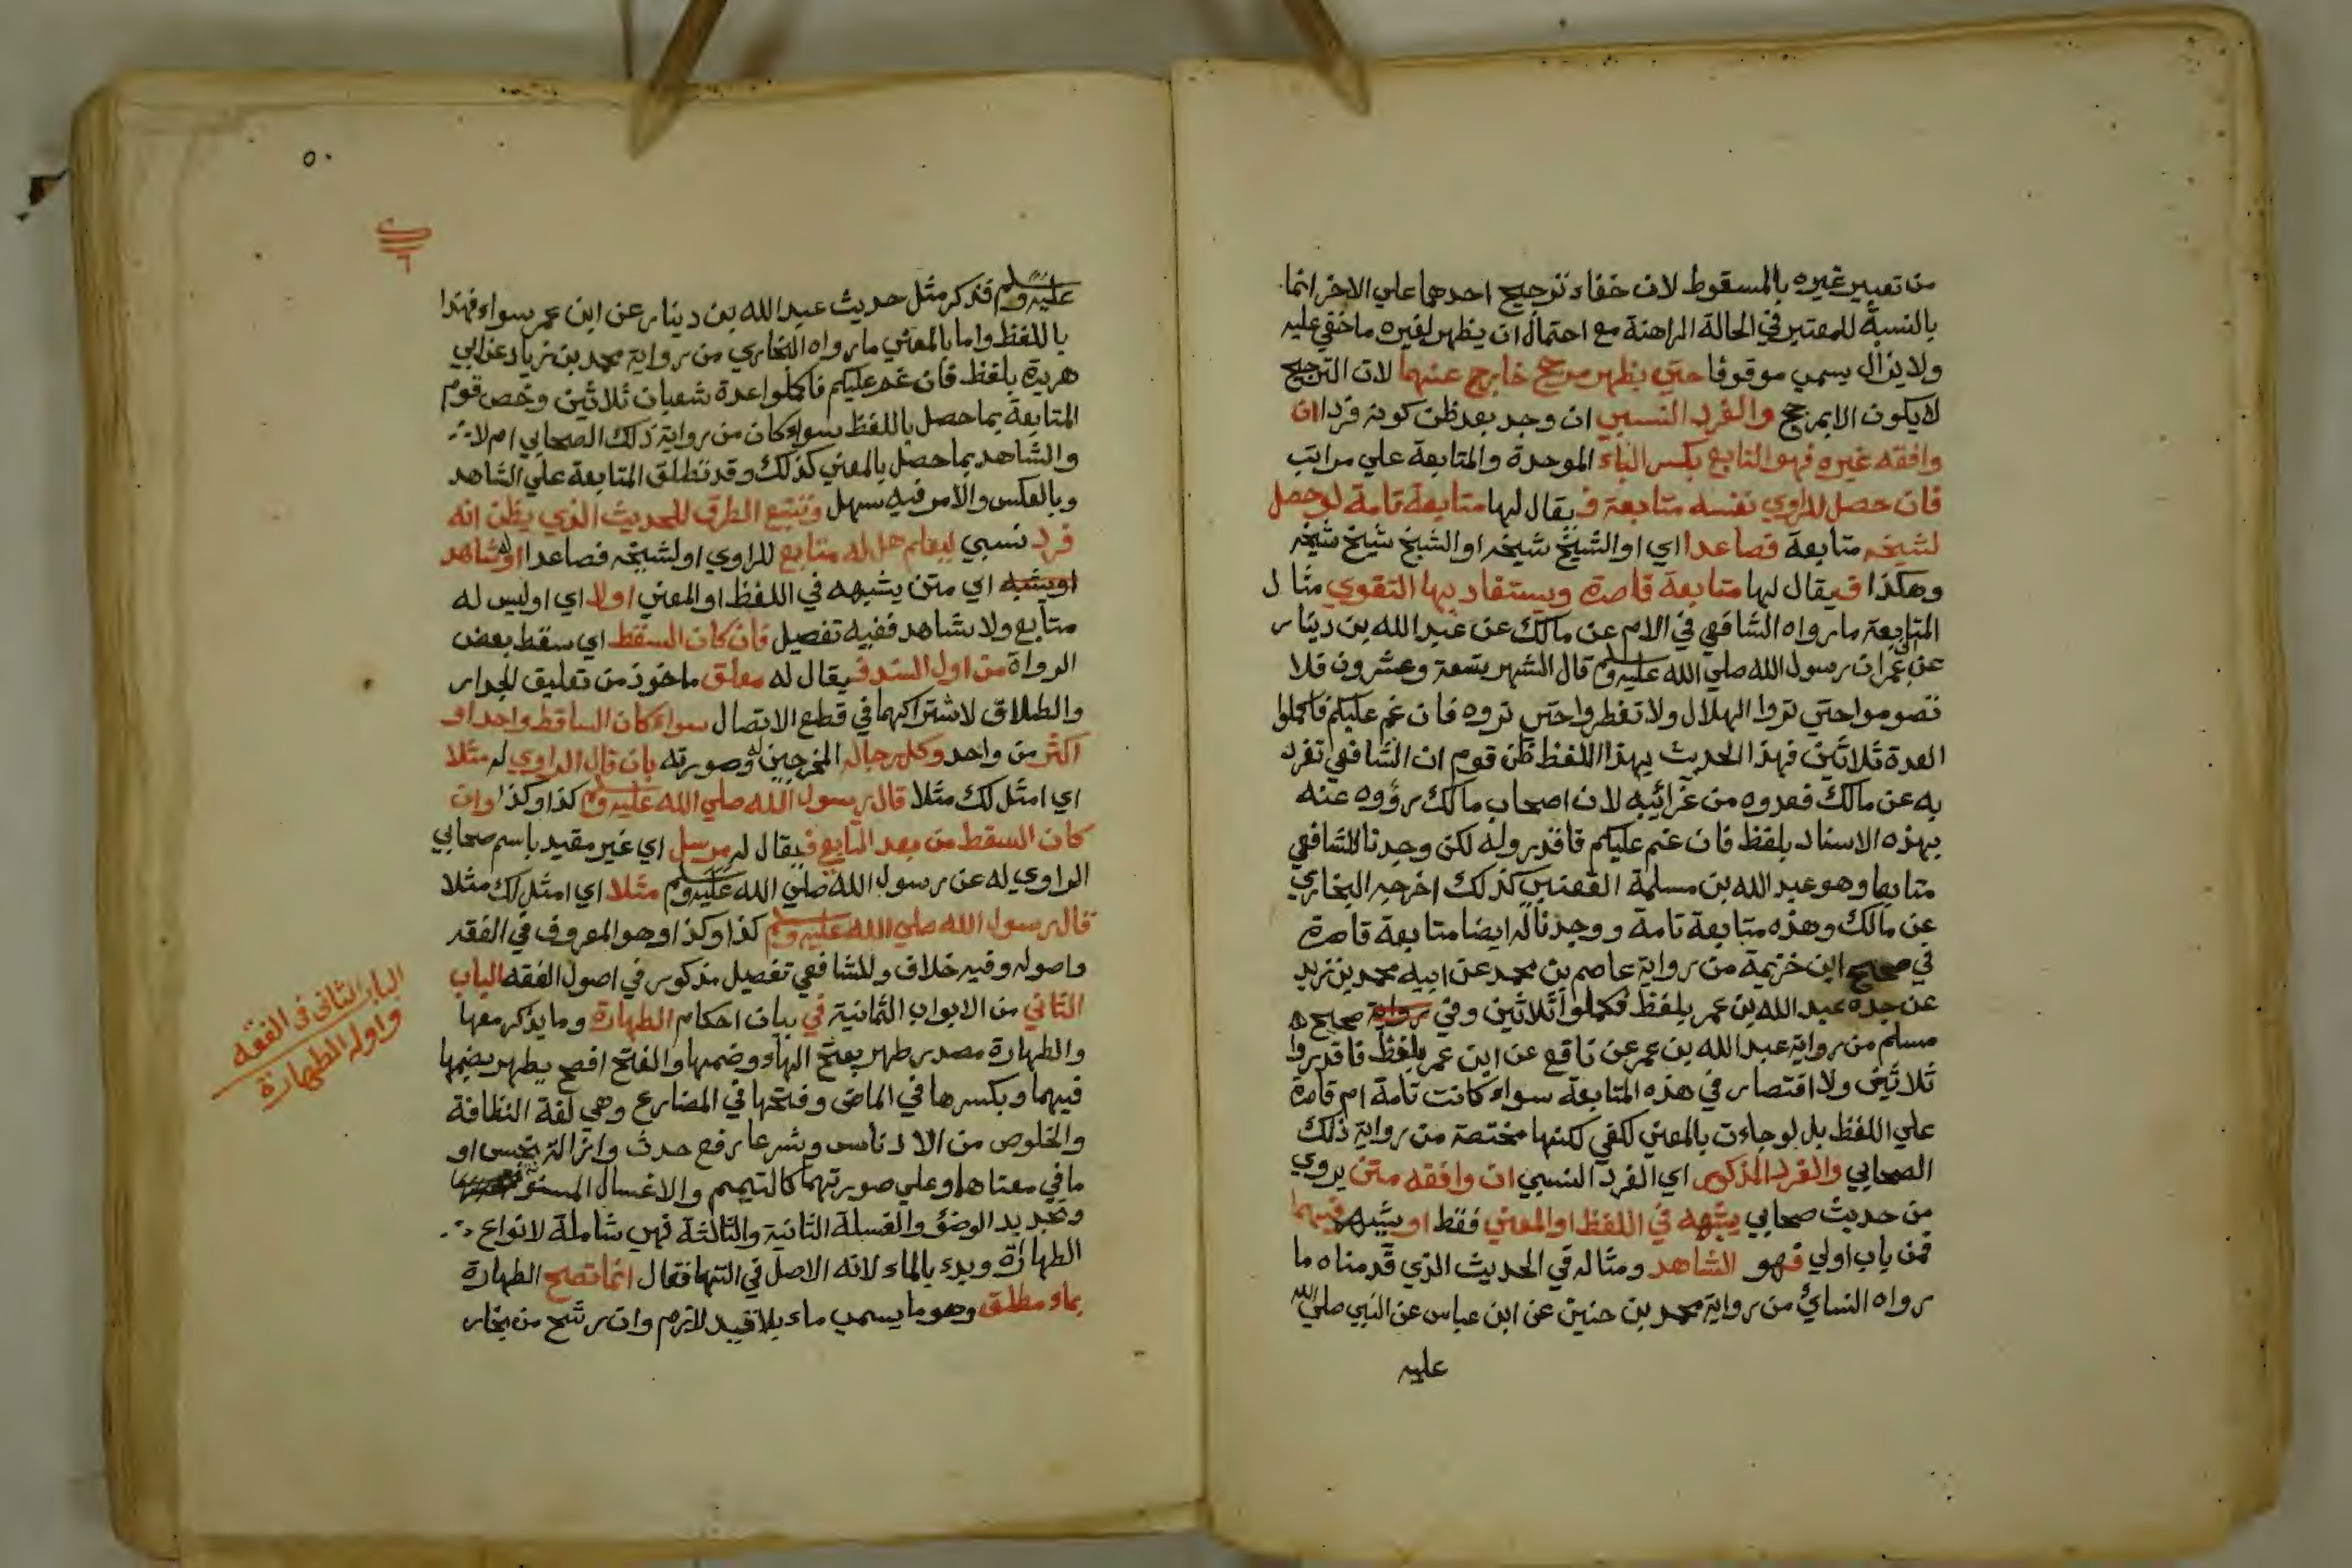 من تعبير غيره بالمسقوط لان خفاء ترجيح احدهما علي الاخر انما
بالنسبة للمعتبر في الحالة الراهنة مع احتمال ان يظهر لغيره ما خفي عليه
ولا يزال يسمي موقوفا حتي يظهر مرجح خارج عنهما لان الترجيح
لا يكون الا بمرجح والفرد النسبي ان وجد بعد ظن كونه فردا ان
وافقه غيره فهو التابع بكسر الباء الموحدة والمتابعة علي مراتب
فان حصل للراوي نفسه متابعة فيقال لها متابعة تامة او حصل
لشيخه متابعة فصاعدا اي او الشيخ شيخه او الشيخ شيخ شيخه
وهكذا فيقال لها متابعة قاصرة ويستفاد بها التقوي مثال
المتابعة ما رواه الشافعي في الام عن مالك عن عبد الله بن دينار
عن ابن عمر ان رسول الله صلي الله عليه وسلم قال الشهر تسعة وعشرون فلا
تصوموا حتي تروا الهلال ولا تفطروا حتي تروه فان غم عليكم فاكملوا
العدة ثلاثين فهذا الحديث بهذا اللفظ ظن قوم ان الشافعي تفرد
به عن مالك فعدوه من غرائبه لان اصحاب مالك رووه عنه
بهذه الاسناد بلفظ فان غم عليكم فاقدروله لكن وجدنا للشافعي
متابعا وهو عبد الله بن مسلمة القعنبي كذلك اخرجه البخاري
عن مالك وهذه متابعة تامة ووجدنا له ايضا متابعة قاصرة
في صحيح ابن خزيمة من رواية عاصم بن محمد عن ابيه محمد بن زيد
عن جده عبد الله بن عمر بلفظ فكملوا ثلاثين وفي رواية صحيح
مسلم من رواية عبد الله بن عمر عن نافع عن ابن عمر بلفظ فاقدروا
ثلاثين ولا اقتصار في هذه المتابعة سواء كانت تامة ام قاصرة
علي اللفظ بل لو جاءت بالمعني لكفي لكنها مختصة من رواية ذلك
الصحابي والفرد المذكور اي الفرد النسبي ان وافقه متن يروي
من حديث صحابي يشبهه في اللفظ او المعني فقط او يشبهه فيهما
فمن باب اولي فهو الشاهد ومثاله في الحديث الذي قدمناه ما
رواه النسائي من رواية محمد بن حنين عن ابن عباس عن النبي صلي الله
عليه
٥٠
عليه وسلم فذكر مثل حديث عبد الله بن دينار عن ابن عمر سواء فهذا
باللفظ واما بالمعني ما رواه البخاري من رواية محمد بن زياد عن ابي
هريرة بلفظ فان غم عليكم فاكملوا عدة شعبان ثلاثين وخص قوم
المتابعة بما حصل باللفظ سواء كان من رواية ذلك الصحابي ام لا
والشاهد بما حصل بالمعني كذلك وقد تطلق المتابعة علي الشاهد
وبالعكس والامر فيه سهل وتتبع الطرق للحديث الذي يظن انه
فرد نسبي ليعلم هل له متابع للراوي او لشيخه فصاعدا او له شاهد
او يشبه اي متن يشبهه في اللفظ او المعني او لا اي او ليس له
متابع ولا شاهد ففيه تفصيل فان كان السقط اي سقط بعض
الرواة من اول السند فيقال له معلق ماخوذ من تعليق الجدار
والطلاق لاشتراكهما في قطع الاتصال سواء كان الساقط واحدا او
اكثر من واحد وكل رجاله المخرجين له وصورته بان قال الراوي له مثلا
اي امثل لك مثلا قال رسول الله صلي الله عليه وسلم كذا وكذا وان
كان السقط من بعد التابع فيقال له مرسل اي غير مقيد باسم صحابي
الراوي له عن رسول الله صلي الله عليه وسلم مثلا اي امثل لك مثلا
قال رسول الله صلي الله عليه وسلم كذا وكذا وهو المعروف في الفقه
واصوله وفيه خلاف وللشافعي تفصيل مذكور في اصول الفقه الباب
الثاني من الابواب الثمانية في بيان احكام الطهارة وما يذكر معها
والطهارة مصدر طهر بفتح الهاء وضمها والفتح افصح يطهر بضمها
فيهما وبكسرها في الماضي وفتحها في المضارع وهي لغة النظافة
والخلوص من الادناس وشرعا رفع حدث وازالة نجس او
ما في معناهما وعلي صورتهما كالتيمم والاغسال المسنونة
وتجديد الوضوء والغسلة الثانية والثالثة فهي شاملة لانواع
الطهارة وبدء بالماء لانه الاصل في التها فقال انما تصح الطهارة
بماء مطلق وهو ما يسمي ماء بلا قيد لازم وان رشح من بخار
الباب الثاني في الفقه
واوله الطهارة